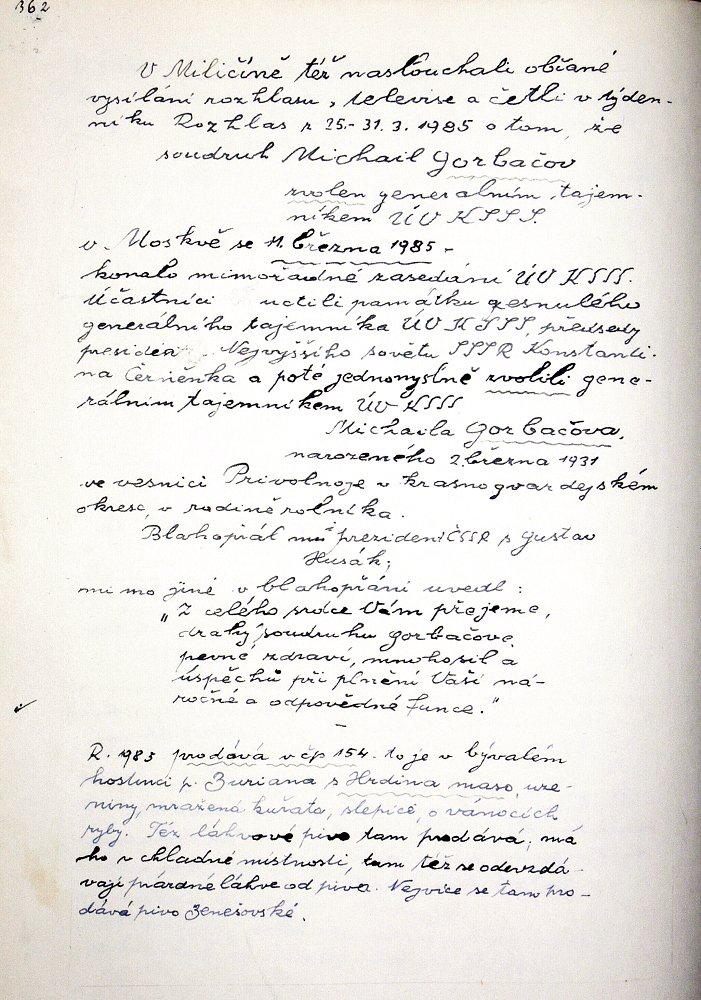 362
V Miličíně též naslouchali občané
vysílání rozhlasu, televise a četli v týden-
níku Rozhlas z 25.-31.3.1985 o tom, že
soudruh Michail Gorbačov
zvolen generálním tajem-
níkem ÚV KSSS.
v Moskvě se 11. března 1985 -
konalo mimořádné zasedání ÚV KSSS.
Účastníci uctili památku zesnulého
generálního tajemníka ÚV KSSS, předsedy
presidia Nejvyššího sovětu SSSR Konstanti-
na Černěnka a poté jednomyslně zvolili gene-
rálním tajemníkem ÚV KSSS
Michaila Gorbačova,
narozeného 2. března 1931
ve vesnici Privolnoje v krasnogvardejském
okrese, v rodině rolníka.
Blahopřál mu i prezident ČSSR s Gustav
Husák;
mimo jiné v blahopřání uvedl:
„Z celého srdce Vám přejeme,
drahý soudruhu Gorbačove,
pevné zdraví, mnoho sil a
úspěchů při plnění Vaší ná-
ročné a odpovědné funce."
-
R. 1985 prodává v čp 154. to je v bývalém
hostinci p. Buriana s Hrdina maso, uze-
niny, mražená kuřata, slepice, o vánocích
ryby. Též láhvové pivo tam prodává; má
ho v chladné místnosti, tam též se odevzdá-
vají prázdné láhve od piva. Nejvíce se tam pro-
dává pivo Benešovské.